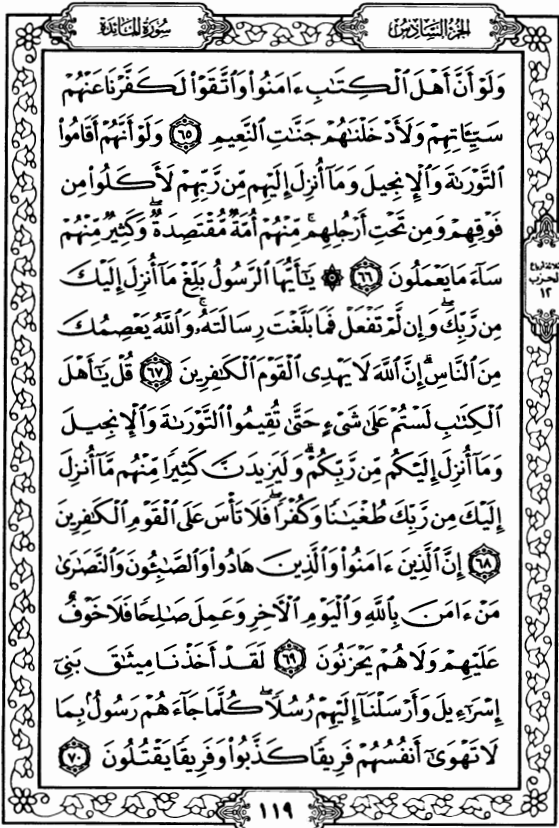 الجزء السادس
سورة المائدة
وَلَوْ أَنَّ أَهْلَ ٱلْكِتَٰبِ ءَامَنُواْ وَٱتَّقَوْاْ لَكَفَّرْنَا عَنْهُمْ
سَيِّـَٔاتِهِمْ وَلَأَدْخَلْنَٰهُمْ جَنَّٰتِ ٱلنَّعِيمِ ٦٥ وَلَوْ أَنَّهُمْ أَقَامُواْ
ٱلتَّوْرَىٰةَ وَٱلْإِنجِيلَ وَمَآ أُنزِلَ إِلَيْهِم مِّن رَّبِّهِمْ لَأَكَلُواْ مِن
فَوْقِهِمْ وَمِن تَحْتِ أَرْجُلِهِم ۚ مِّنْهُمْ أُمَّةٌ مُّقْتَصِدَةٌ ۖ وَكَثِيرٌ مِّنْهُمْ
سَآءَ مَا يَعْمَلُونَ ٦٦ ۞ يَٰٓأَيُّهَا ٱلرَّسُولُ بَلِّغْ مَآ أُنزِلَ إِلَيْكَ
مِن رَّبِّكَ ۖ وَإِن لَّمْ تَفْعَلْ فَمَا بَلَّغْتَ رِسَالَتَهُۥ ۚ وَٱللَّهُ يَعْصِمُكَ
مِنَ ٱلنَّاسِ ۗ إِنَّ ٱللَّهَ لَا يَهْدِى ٱلْقَوْمَ ٱلْكَٰفِرِينَ ٦٧ قُلْ يَٰٓأَهْلَ
ٱلْكِتَٰبِ لَسْتُمْ عَلَىٰ شَىْءٍ حَتَّىٰ تُقِيمُواْ ٱلتَّوْرَىٰةَ وَٱلْإِنجِيلَ
وَمَآ أُنزِلَ إِلَيْكُم مِّن رَّبِّكُمْ ۗ وَلَيَزِيدَنَّ كَثِيرًا مِّنْهُم مَّآ أُنزِلَ
إِلَيْكَ مِن رَّبِّكَ طُغْيَٰنًا وَكُفْرًا ۖ فَلَا تَأْسَ عَلَى ٱلْقَوْمِ ٱلْكَٰفِرِينَ
٦٨ إِنَّ ٱلَّذِينَ ءَامَنُواْ وَٱلَّذِينَ هَادُواْ وَٱلصَّٰبِـُٔونَ وَٱلنَّصَٰرَىٰ
مَنْ ءَامَنَ بِٱللَّهِ وَٱلْيَوْمِ ٱلْءَاخِرِ وَعَمِلَ صَٰلِحًا فَلَا خَوْفٌ
عَلَيْهِمْ وَلَا هُمْ يَحْزَنُونَ ٦٩ لَقَدْ أَخَذْنَا مِيثَٰقَ بَنِىٓ
إِسْرَٰٓءِيلَ وَأَرْسَلْنَآ إِلَيْهِمْ رُسُلًا ۖ كُلَّمَا جَآءَهُمْ رَسُولٌۢ بِمَا
لَا تَهْوَىٰٓ أَنفُسُهُمْ فَرِيقًا كَذَّبُواْ وَفَرِيقًا يَقْتُلُونَ ٧٠
الحزب
١٢
١١٩